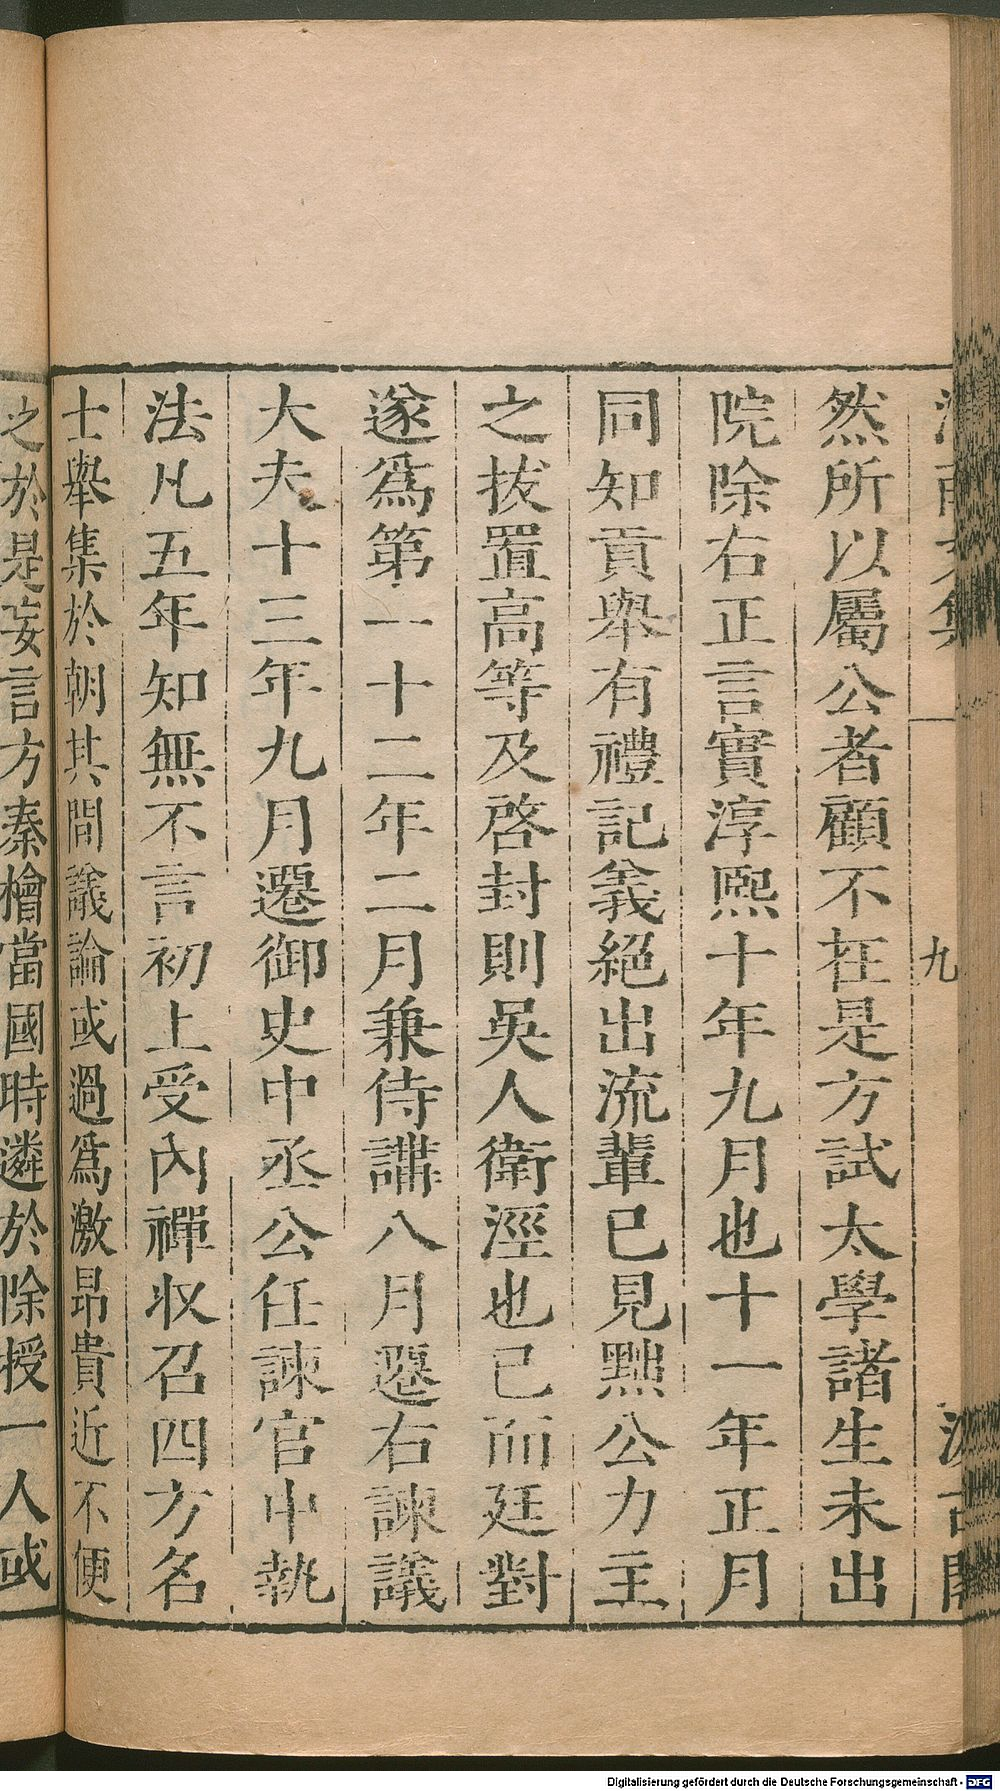 九
然所以屬公者顧不在是方試太學諸生未出
院除右正言實淳熙十年九月也十一年正月
同知貢舉有禮記義絕出流輩已見黜公力主
之拔置高等及啓封則吳人衛涇也已而廷對
遂爲第一十二年二月兼侍講八月遷右諫議
大夫十三年九月遷御史中丞公任諫官中執
法凡五年知無不言初上受內禪収召四方名
士舉集於朝其間議論或過爲激昂貴近不便
之於是妄言方秦檜當國時遴於除授一人或
Digitalisierung gefördert durch die Deutsche Forschungsgemeinschaft - DFG